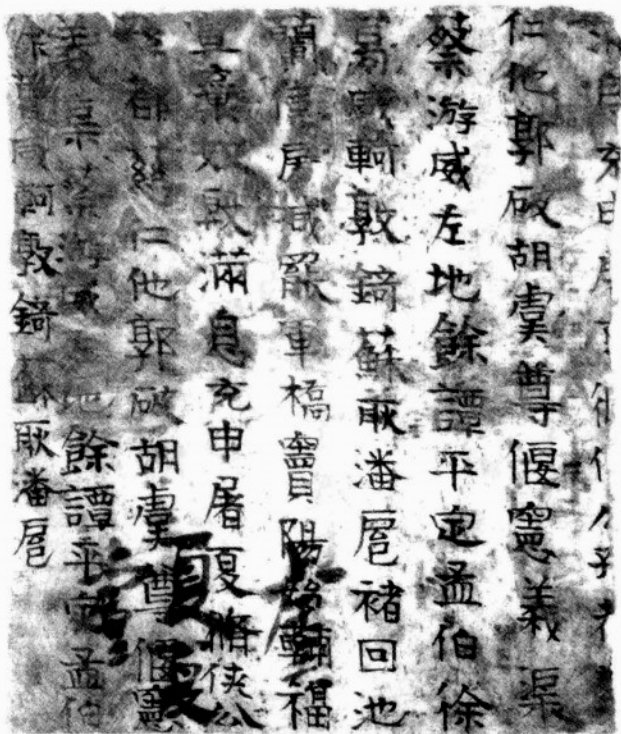 息充申屠夏脩俠公孫都
仁他郭破胡虞尊偃憲義渠
蔡游威左地餘譚平定孟伯徐
葛咸軻敦錡蘇耿潘扈褚回池
蘭偉房減罷軍橋竇陽始輔福
宣棄奴殷滿息充申屠夏脩俠公
孫都慈仁他郭破胡虞尊偃憲
義渠蔡游威左地餘譚平定孟伯
徐葛咸軻敦錡蘇耿潘扈